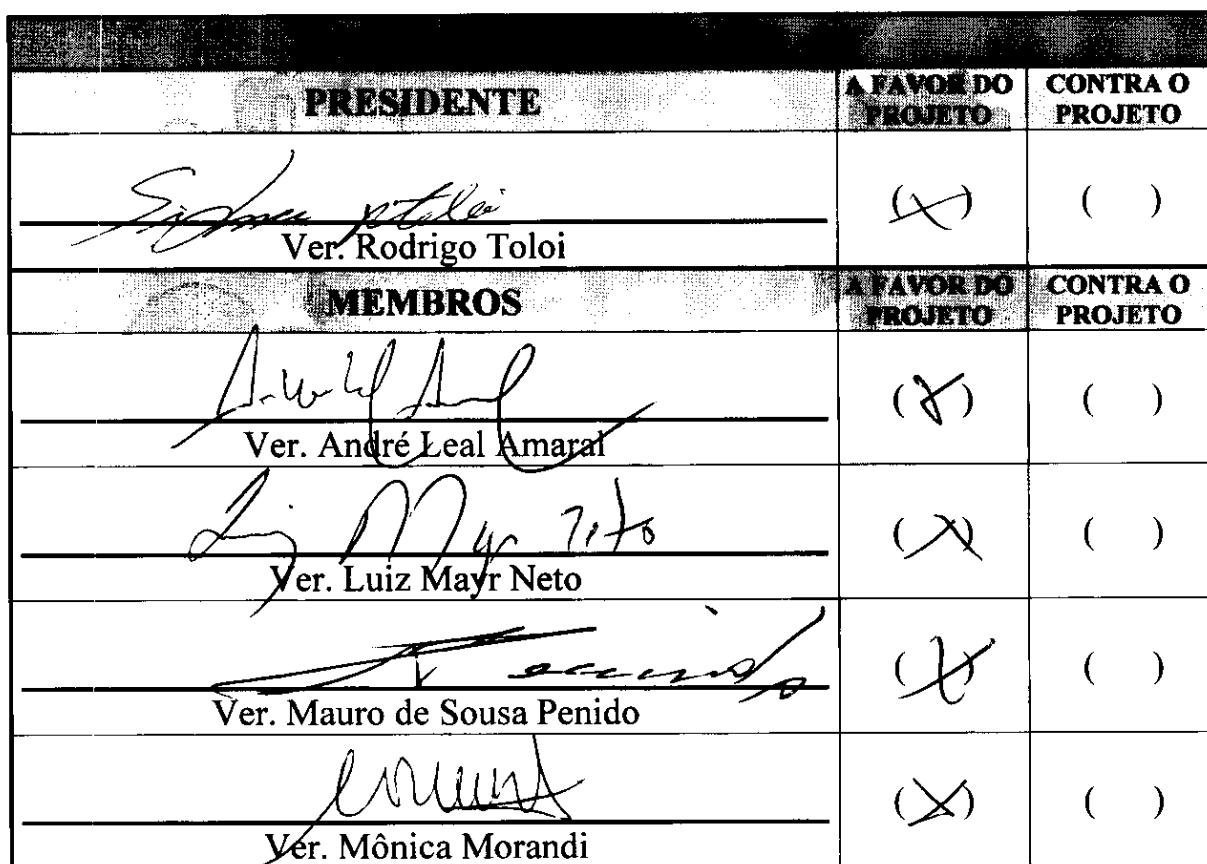 PRESIDENTE A FAVOR DO PROJETO CONTRA O PROJETO
(X) ( )
Ver. Rodrigo Toloi
MEMBROS A FAVOR DO PROJETO CONTRA O PROJETO
(X) ( )
Ver. André Leal Amaral
(X) ( )
Ver. Luiz Mayr Neto
(X) ( )
Ver. Mauro de Sousa Penido
(X) ( )
Ver. Mônica Morandi